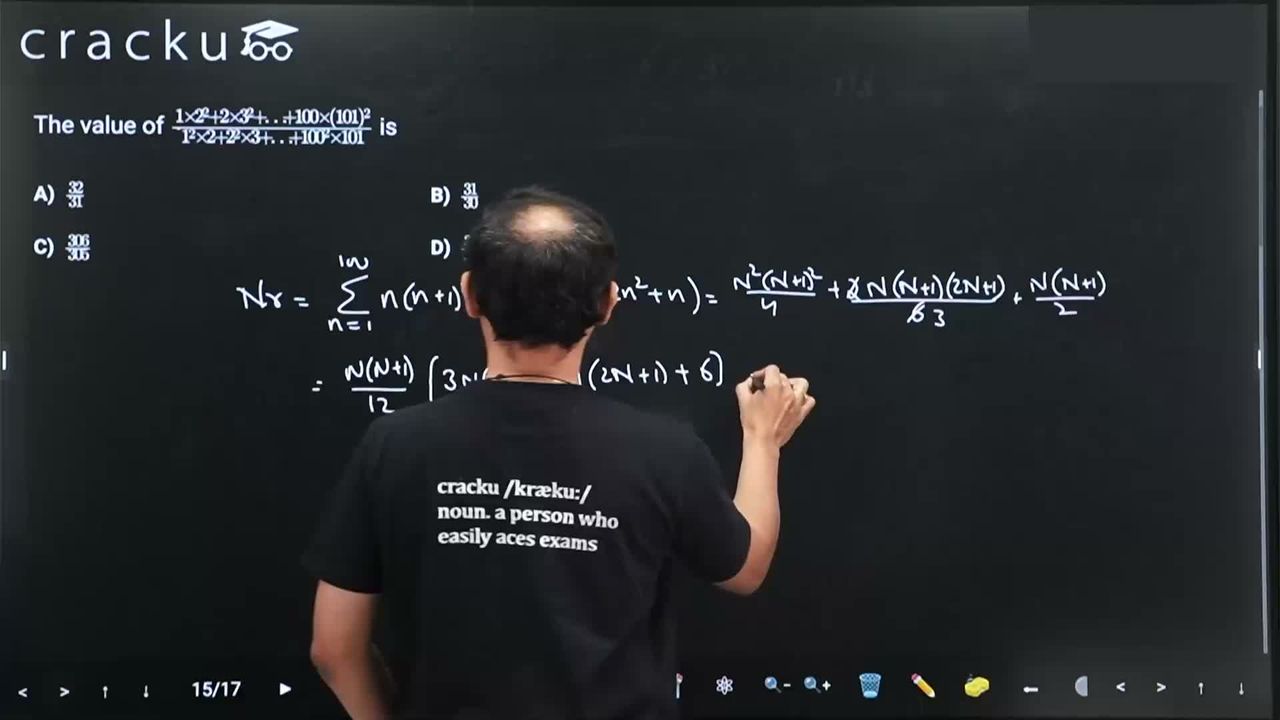 cracku
The value of \frac{1×2²+2×3²+...+100×(101)²}{1²×2+2²×3+...+100²×101} is
A) \frac{32}{31}
B) \frac{31}{30}
C) \frac{306}{305}
D)
Nr = \sum_{n=1}^{100} n(n+1) n² + n) = \frac{N²(N+1)²}{4} + \frac{2N(N+1)(2N+1)}{6 3} + \frac{N(N+1)}{2}
= \frac{N(N+1)}{12} [3N (2N+1) + 6]
cracku /kræku:/
noun. a person who
easily aces exams
15/17